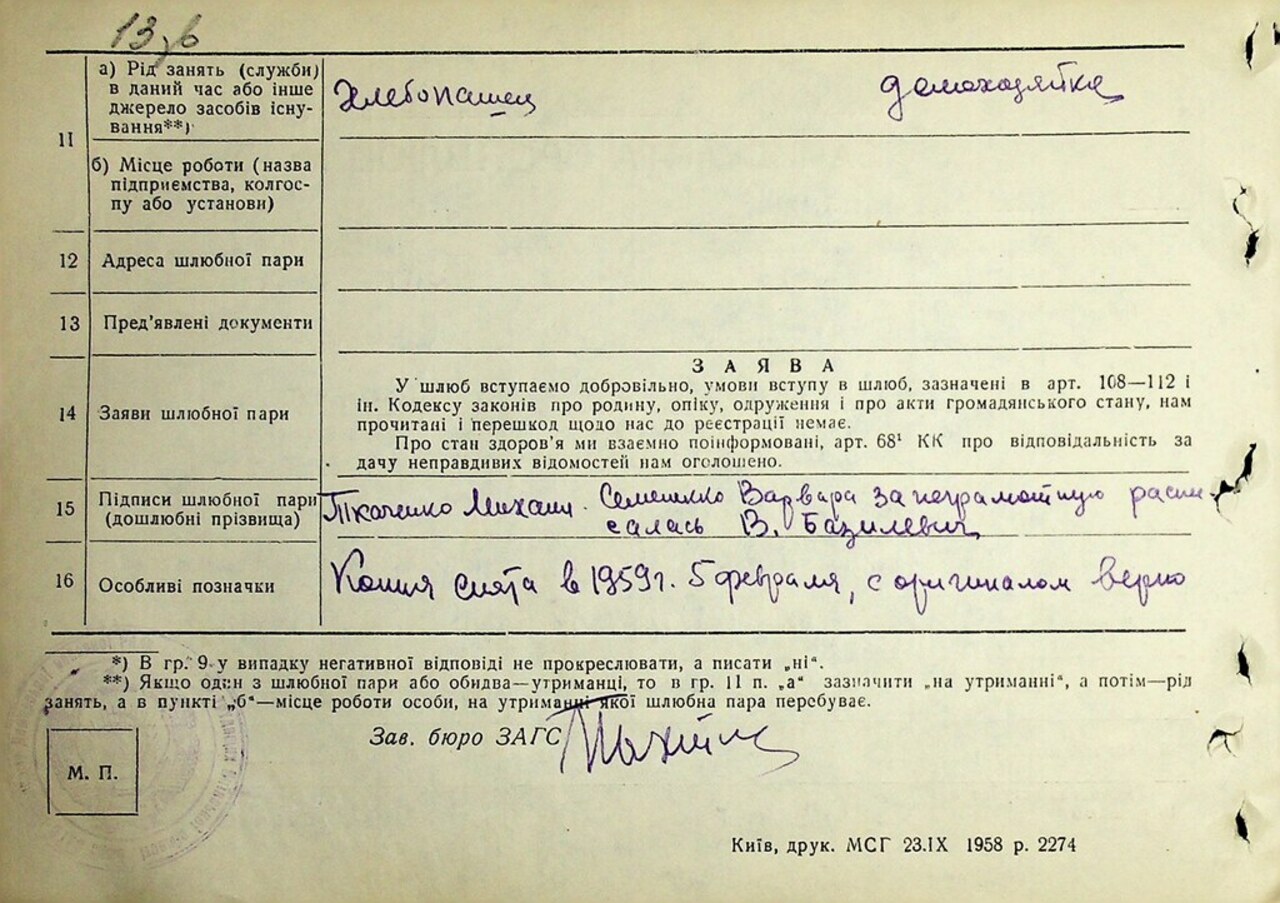 13 зв
11
а) Рід занять (служби)
в даний час або інше
джерело засобів існу-
вання**)
Хлебопашец
домохозяйка
б) Місце роботи (назва
підприємства, колгос-
пу або установи)
12
Адреса шлюбної пари
13
Пред'явлені документи
14
Заяви шлюбної пари
ЗАЯВА
У шлюб вступаємо добровільно, умови вступу в шлюб, зазначені в арт. 108—112 і
ін. Кодексу законів про родину, опіку, одруження і про акти громадянського стану, нам
прочитані і перешкод щодо нас до реєстрації немає.
Про стан здоров'я ми взаємно поінформовані, арт. 68¹ КК про відповідальність за
дачу неправдивих відомостей нам оголошено.
15
Підписи шлюбної пари
(дошлюбні прізвища)
Ткаченко Михаил. Семенко Варвара за неграмотную распи
салась В. Базилевич
16
Особливі позначки
Копия снята в 1959 г. 5 февраля, с оригиналом верно
*) В гр. 9 у випадку негативної відповіді не прокреслювати, а писати „ні“.
**) Якщо один з шлюбної пари або обидва—утриманці, то в гр. 11 п. „а“ зазначити „на утриманні“, а потім—рід
занять, а в пункті „б“—місце роботи особи, на утриманні якої шлюбна пара перебуває.
Зав. бюро ЗАГС
М. П.
Київ, друк. МСГ 23.IX 1958 р. 2274